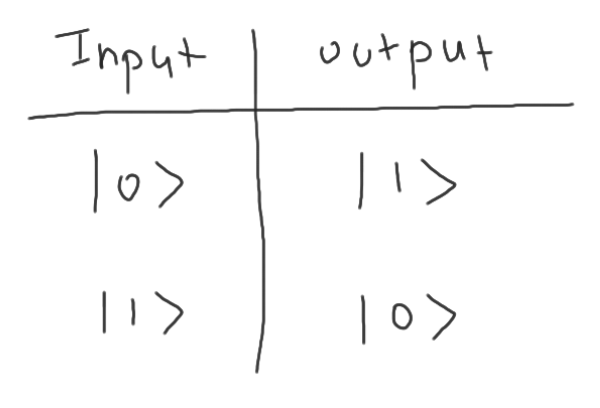 Input output
|0> |1>
|1> |0>